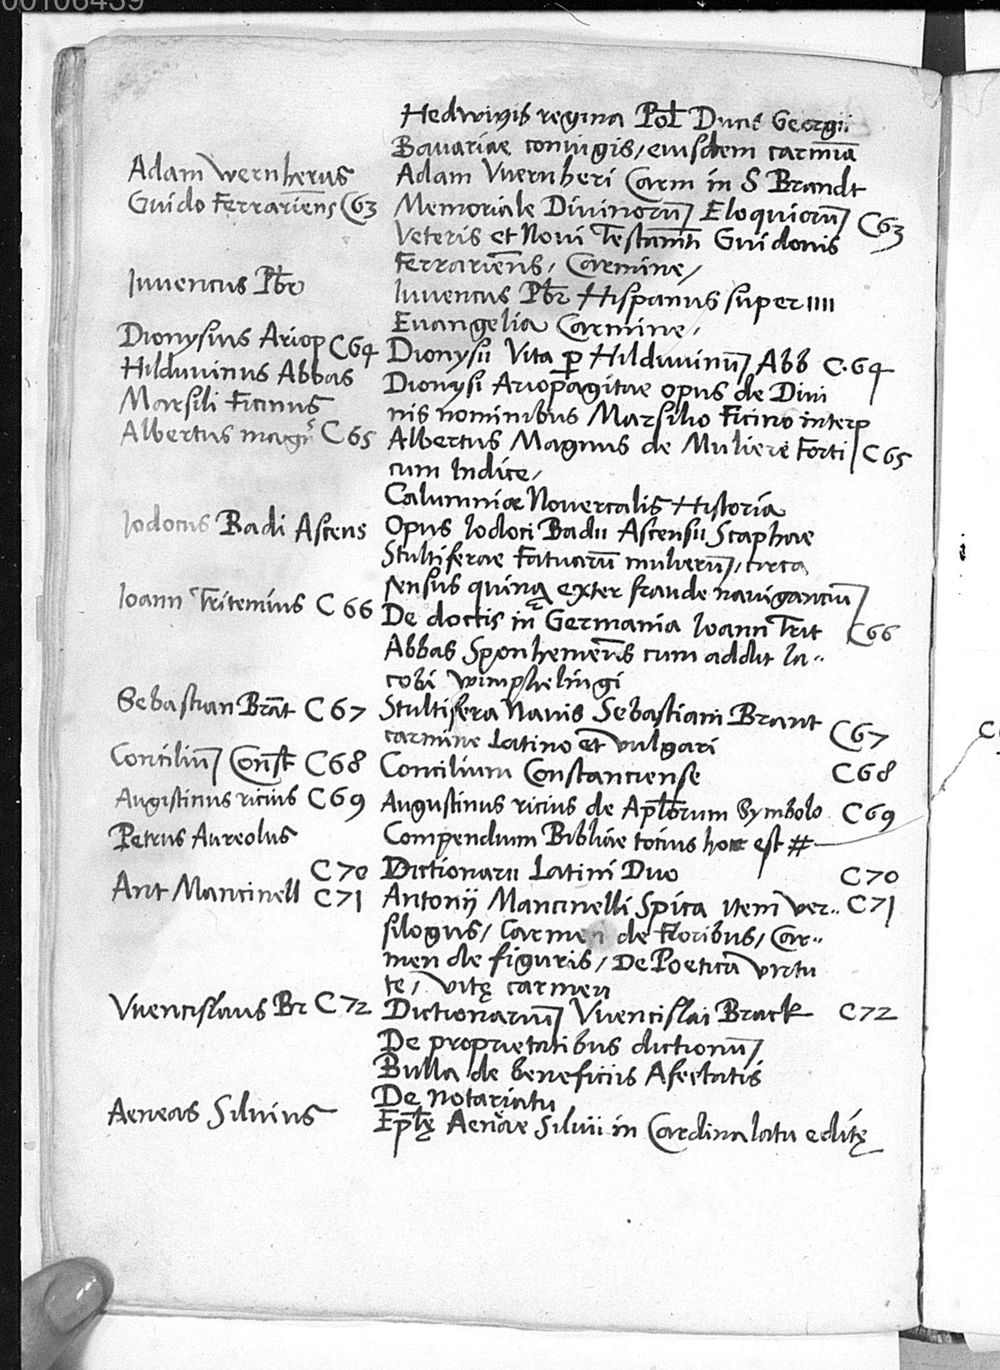 00106439
Hedwigis regina Pol Ducis Georgii
Bavariae coniugis, eiusdem carmina
Adam Wernherus Adam Vuernheri Carm in S Brandt
Guido Ferrariens C63 Memoriale Divinorum Eloquiorum C63
Veteris et Novi Testamti Guidonis
Ferrariensis, Carmine,
Iuvencus Pbr Iuvencus Pbr Hispanus super IIII
Evangelia Carmine,
Dionysius Ariop C64 Dionysii Vita p Hilduuinum Abb C.64
Hilduuinus Abbas Dionysi Ariopagitae opus de Divi
Marsili Ficinus nis nominibus Marsilio Ficino interp
Albertus magn C65 Albertus Magnus de Muliere Forti C65
cum Indice,
Calumniae Novercalis Historia
Iodocus Badi Ascens Opus Iodoci Badii Ascensii Scaphae
Stultiferae Fatuarum mulierum, circa
sensus quinq exter fraude navigantium
Ioann Tritemius C66 De doctis in Germania Ioann Trit C66
Abbas Sponhemens cum addit Ia..
cobi Wimphelingi
Sebastian Brant C67 Stultifera Navis Sebastiani Brant C67
carmine Latino et vulgari
Concilium Const C68 Concilium Constanciense C68
Augustinus ricius C69 Augustinus ricius de Aplorum Symbolo C69
Petrus Aureolus Compendium Bibliae totius hoc est #
C70 Dictionarii Latini Duo C70
Ant Mancinell C71 Antonij Mancinelli Spica item ver.. C71
silogus, Carmen de Floribus, Car..
men de figuris, De Poetica virtu
te, vitę carmen
Vuencislaus Br C72 Dictionarium Vuencislai Brack C72
De proprietatibus dictionum
Bulla de beneficiis Afectatis
De Notariatu
Aeneas Silvius Eplę Aeneae Silvii in Cardinalatu editę